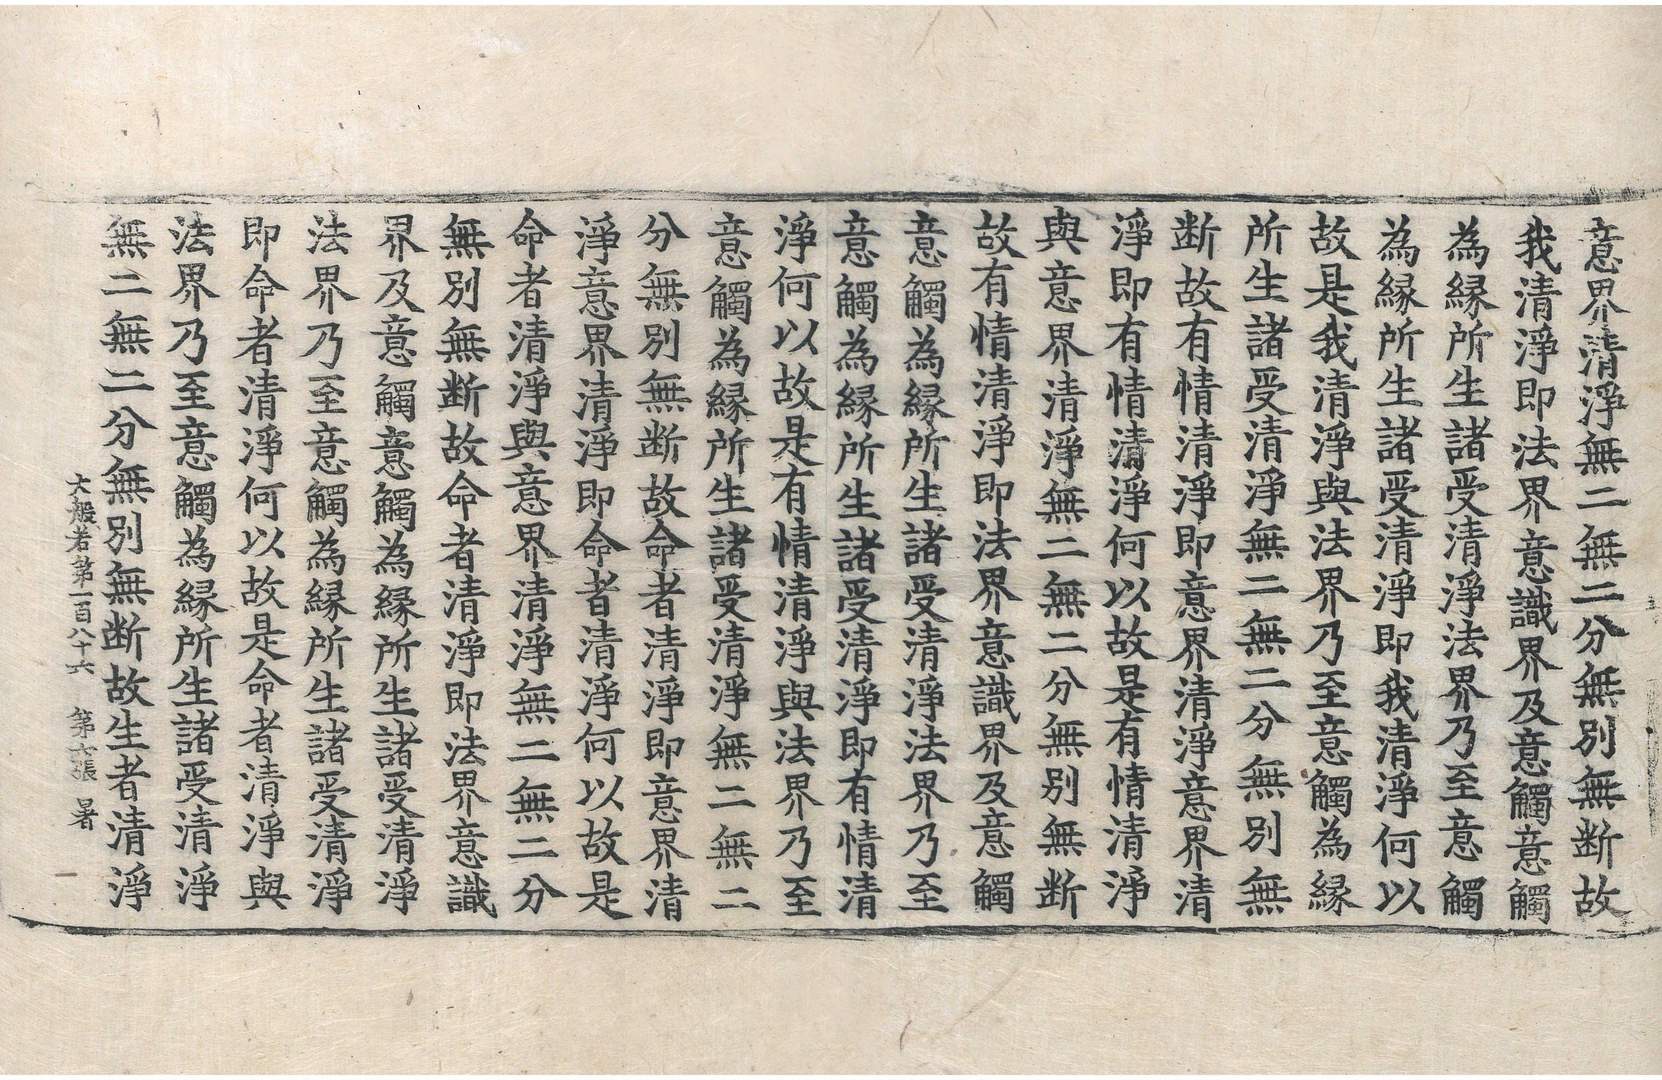 意界清淨無二無二分無別無断故
我清淨即法界意識界及意觸意觸
為縁所生諸受清淨法界乃至意觸
為縁所生諸受清淨即我清淨何以
故是我清淨與法界乃至意觸為縁
所生諸受清淨無二無二分無別無
断故有情清淨即意界清淨意界清
淨即有情清淨何以故是有情清淨
與意界清淨無二無二分無別無断
故有情清淨即法界意識界及意觸
意觸為縁所生諸受清淨法界乃至
意觸為縁所生諸受清淨即有情清
淨何以故是有情清淨與法界乃至
意觸為縁所生諸受清淨無二無二
分無別無断故命者清淨即意界清
淨意界清淨即命者清淨何以故是
命者清淨與意界清淨無二無二分
無別無断故命者清淨即法界意識
界及意觸意觸為縁所生諸受清淨
法界乃至意觸為縁所生諸受清淨
即命者清淨何以故是命者清淨與
法界乃至意觸為縁所生諸受清淨
無二無二分無別無断故生者清淨
大般若第一百八十六 第六張 暑